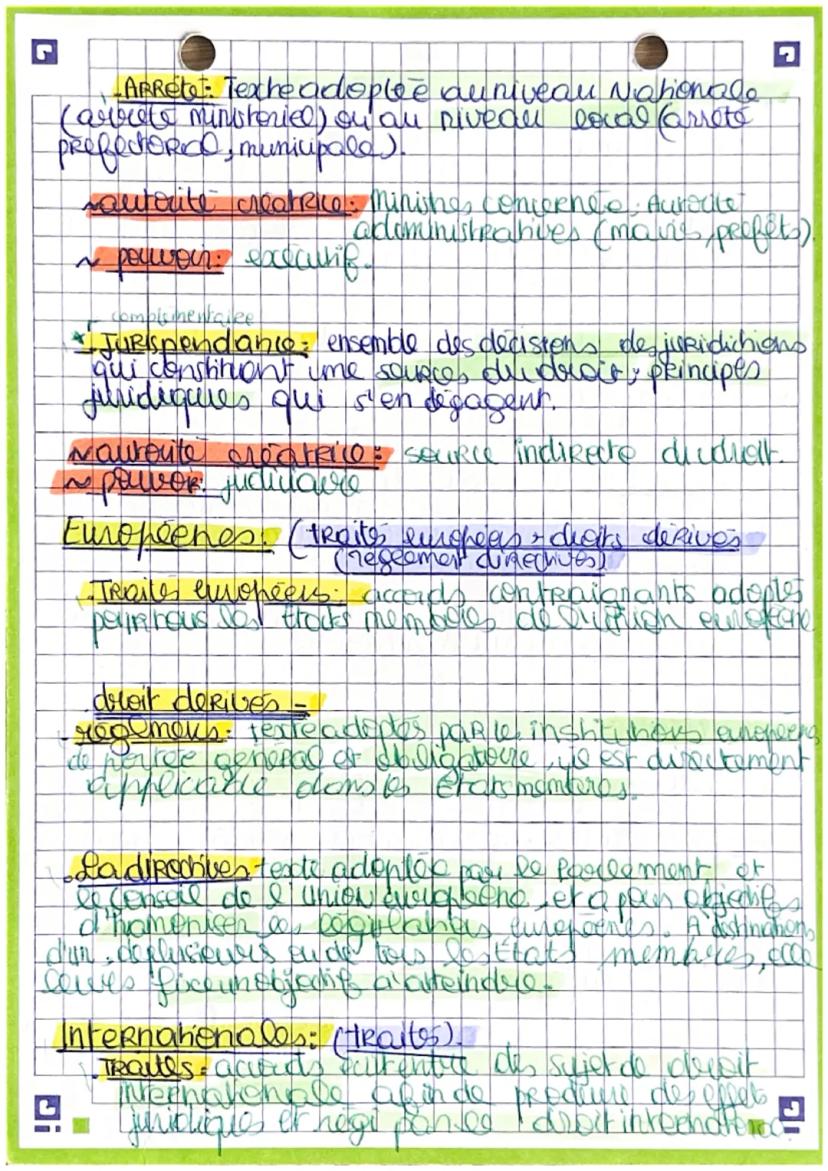 .ARRété: Texte adoptée au niveau Nationale
(arrêté ministeriel) ou au niveau local (arreté
préfectoral, municipale).
~ autorité créatrice: Ministres concernée, Autorité
administratives (maires, préfêts).
~ pouvoir: exécutif.
complémentaire
. Jurispendance: ensemble des décisions des juridictions
qui constituent une sources du droit, principes
juridiques qui s'en dégagent.
~ autorité créatrice: source indirecte du droit.
~ pouvoir: judiciaire
Européenes: (traités européens + droits dérivés
(règlement directives)
. Traités européens: accords contraignants adoptés
par tous les états membres de l'union européene
droit derivés -
- réglemens: texte adoptés par les institutions européens
de portée général et obligatoire, il est directement
applicable dans les États membres.
. La directives - texte adoptée par le Parlement et
le Conseil de l'Union européene, et a pour objectifs
d'harmoniser les législations européenes. A destinations
d'un, de plusieurs ou de tous les États membres, elle
leurs fixe un objectif à atteindre.
Internationales: (traités).
. Traités: accords entre des sujet de droit
internationale afin de produire des effet
juridiques et régi par le droit international